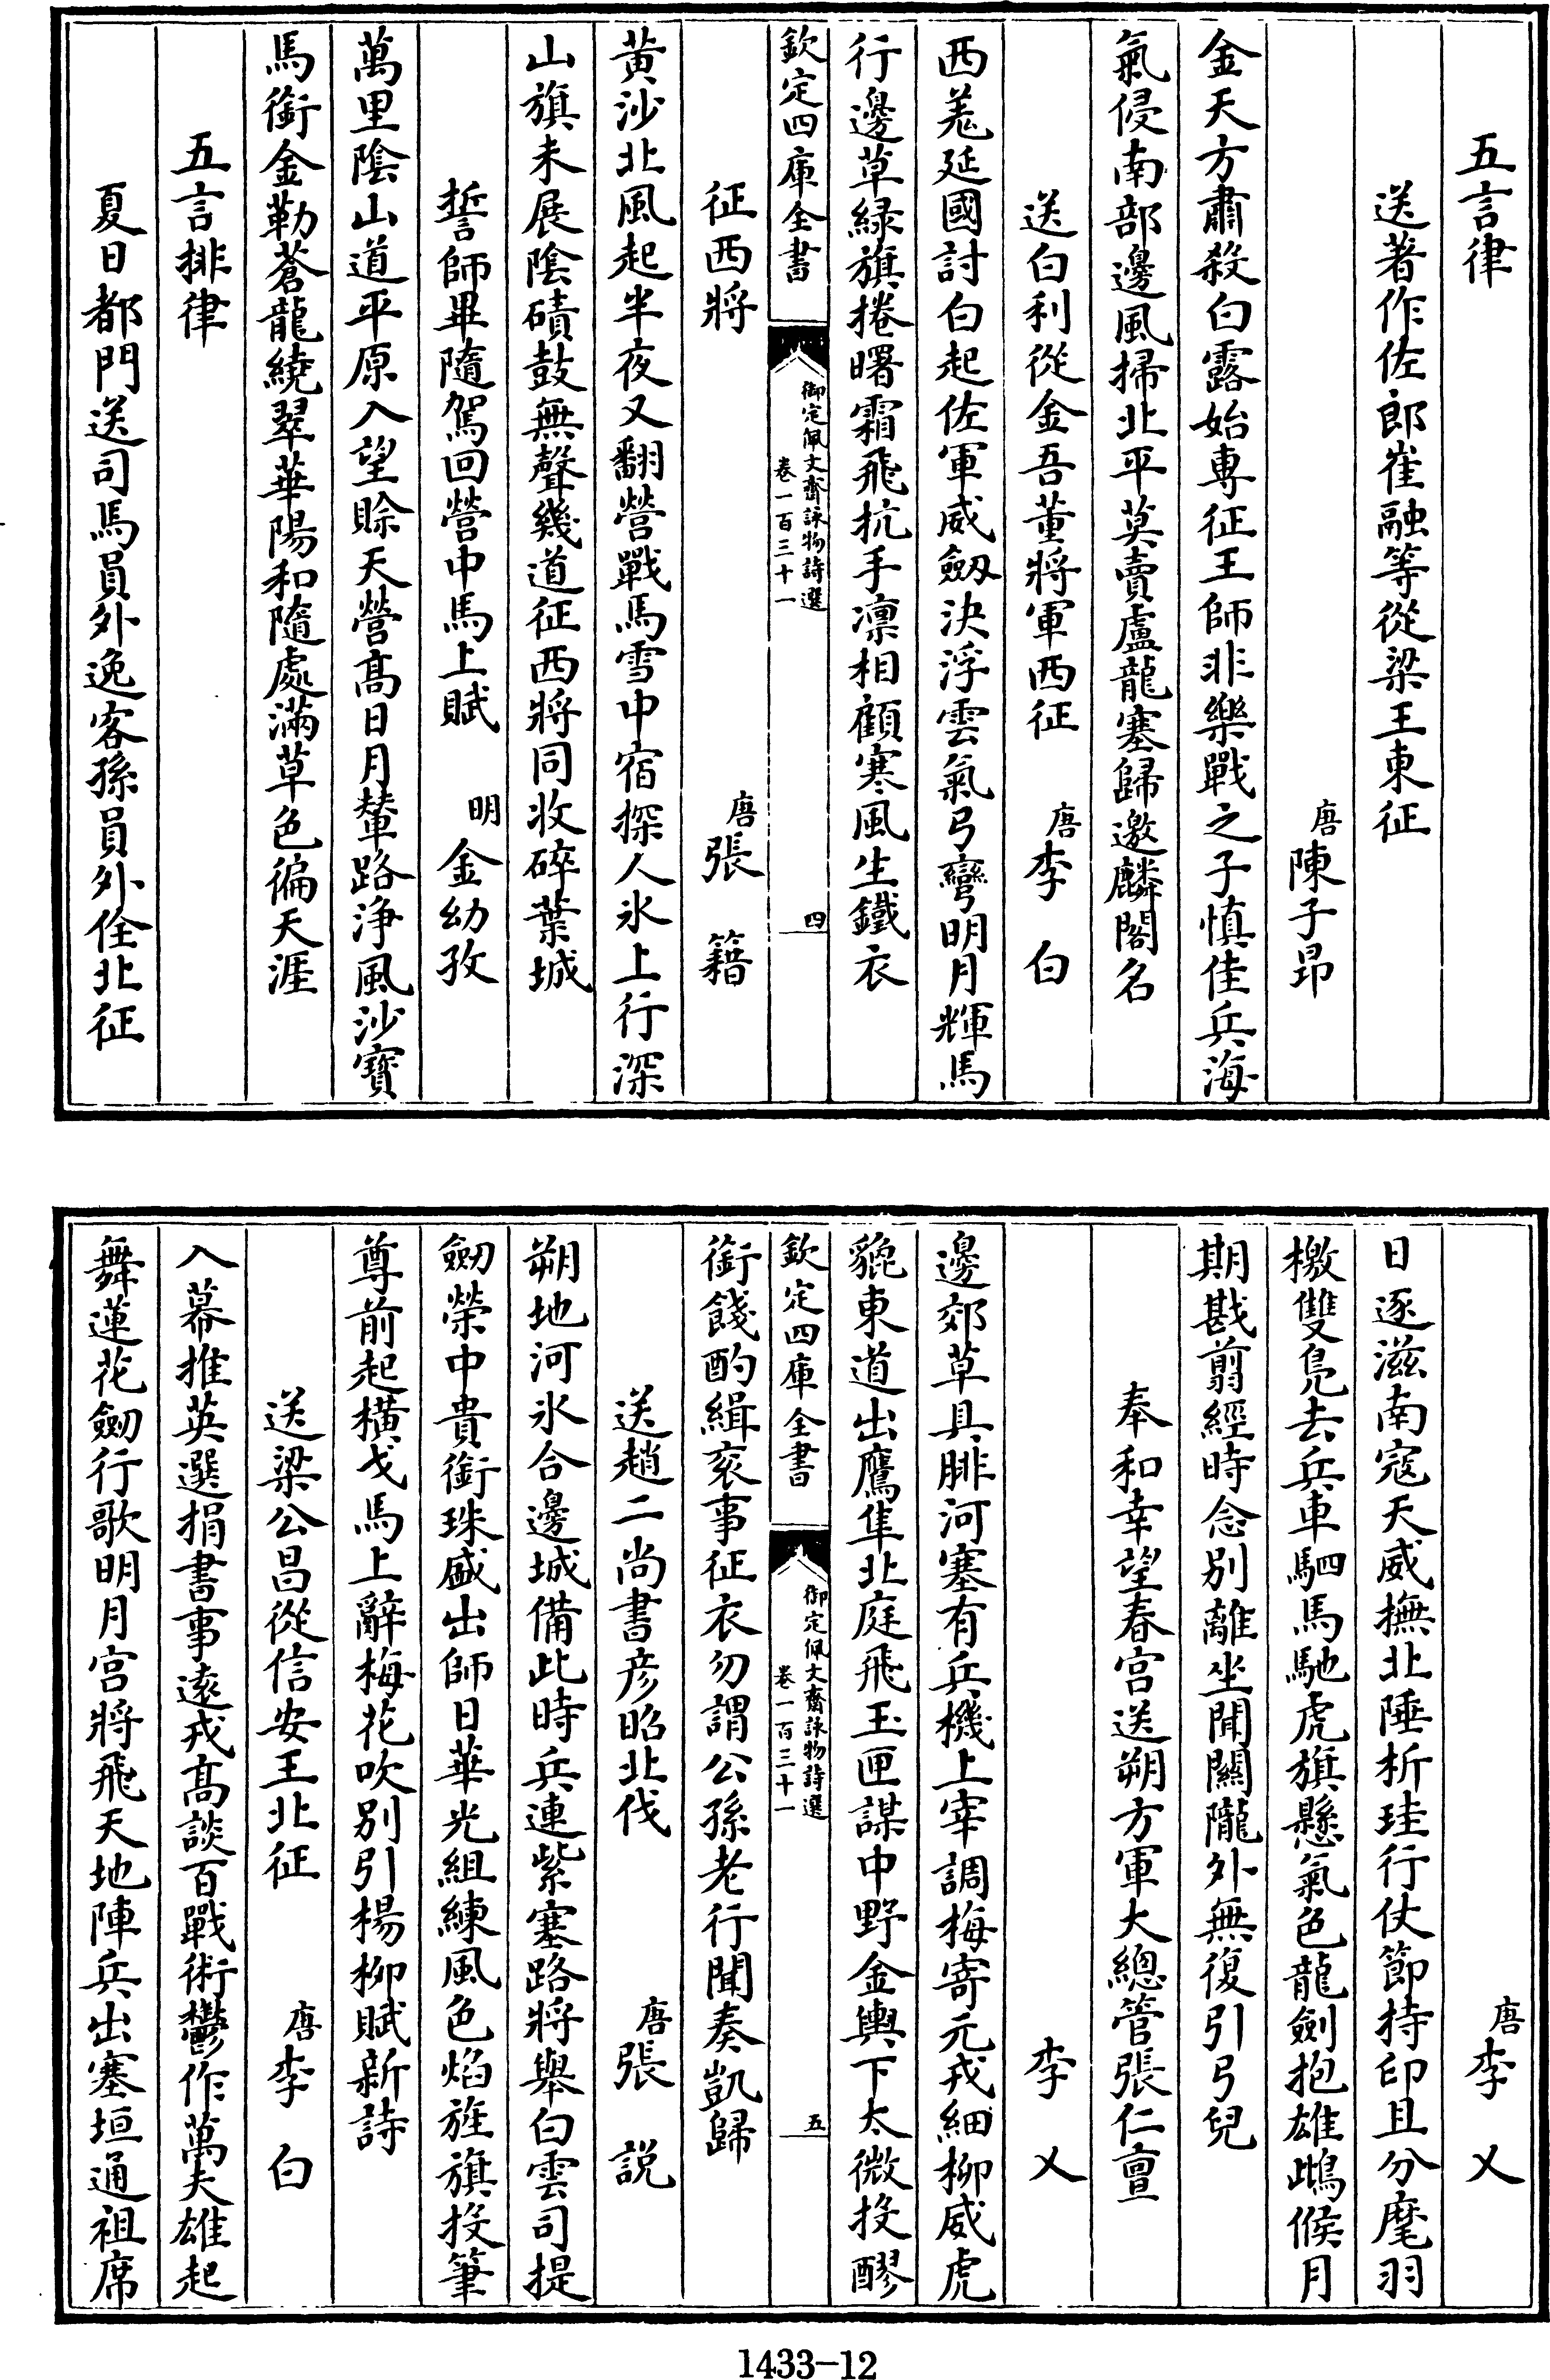 五言律
送著作佐郎崔融等從梁王東征
唐陳子昂
金天方肅殺白露始專征王師非樂戰之子慎佳兵海
氣侵南部邊風掃北平莫賣盧龍塞歸邀麟閣名
送白利從金吾董將軍西征 唐李白
西羌延國討白起佐軍威劔決浮雲氣弓彎明月輝馬
行邊草緑旗捲曙霜飛抗手凛相顧寒風生鐵衣
欽定四庫全書 御定佩文齋詠物詩選 卷一百三十一 四
征西將 唐張籍
黄沙北風起半夜又翻營戰馬雪中宿探人氷上行深
山旗未展陰磧鼓無聲幾道征西將同收碎葉城
誓師畢隨駕回營中馬上賦 明金幼孜
萬里陰山道平原入望賒天營髙日月輦路浄風沙寳
馬銜金勒蒼龍繞翠華陽和隨處滿草色徧天涯
五言排律
夏日都門送司馬員外逸客孫員外佺北征
唐李乂
日逐滋南寇天威撫北陲析珪行仗節持印且分麾羽
檄雙鳧去兵車駟馬馳虎旗懸氣色龍劍抱雄鴟候月
期戡翦經時念别離坐聞關隴外無復引弓兒
奉和幸望春宫送朔方軍大總管張仁亶
李乂
邊郊草具腓河塞有兵機上宰調梅寄元戎細柳威虎
貔東道出鷹隼北庭飛玉匣謀中野金輿下太微投醪
欽定四庫全書 御定佩文齋詠物詩選 卷一百三十一 五
銜餞酌緝衮事征衣勿謂公孫老行聞奏凱歸
送趙二尚書彦昭北伐 唐張説
朔地河氷合邊城備此時兵連紫塞路將舉白雲司提
劔榮中貴銜珠盛出師日華光組練風色焰旌旗投筆
尊前起横戈馬上辭梅花吹别引楊柳賦新詩
送梁公昌從信安王北征 唐李白
入幕推英選捐書事逺戎髙談百戰術鬱作萬夫雄起
舞蓮花劔行歌明月宫將飛天地陣兵出塞垣通祖席
1433-12